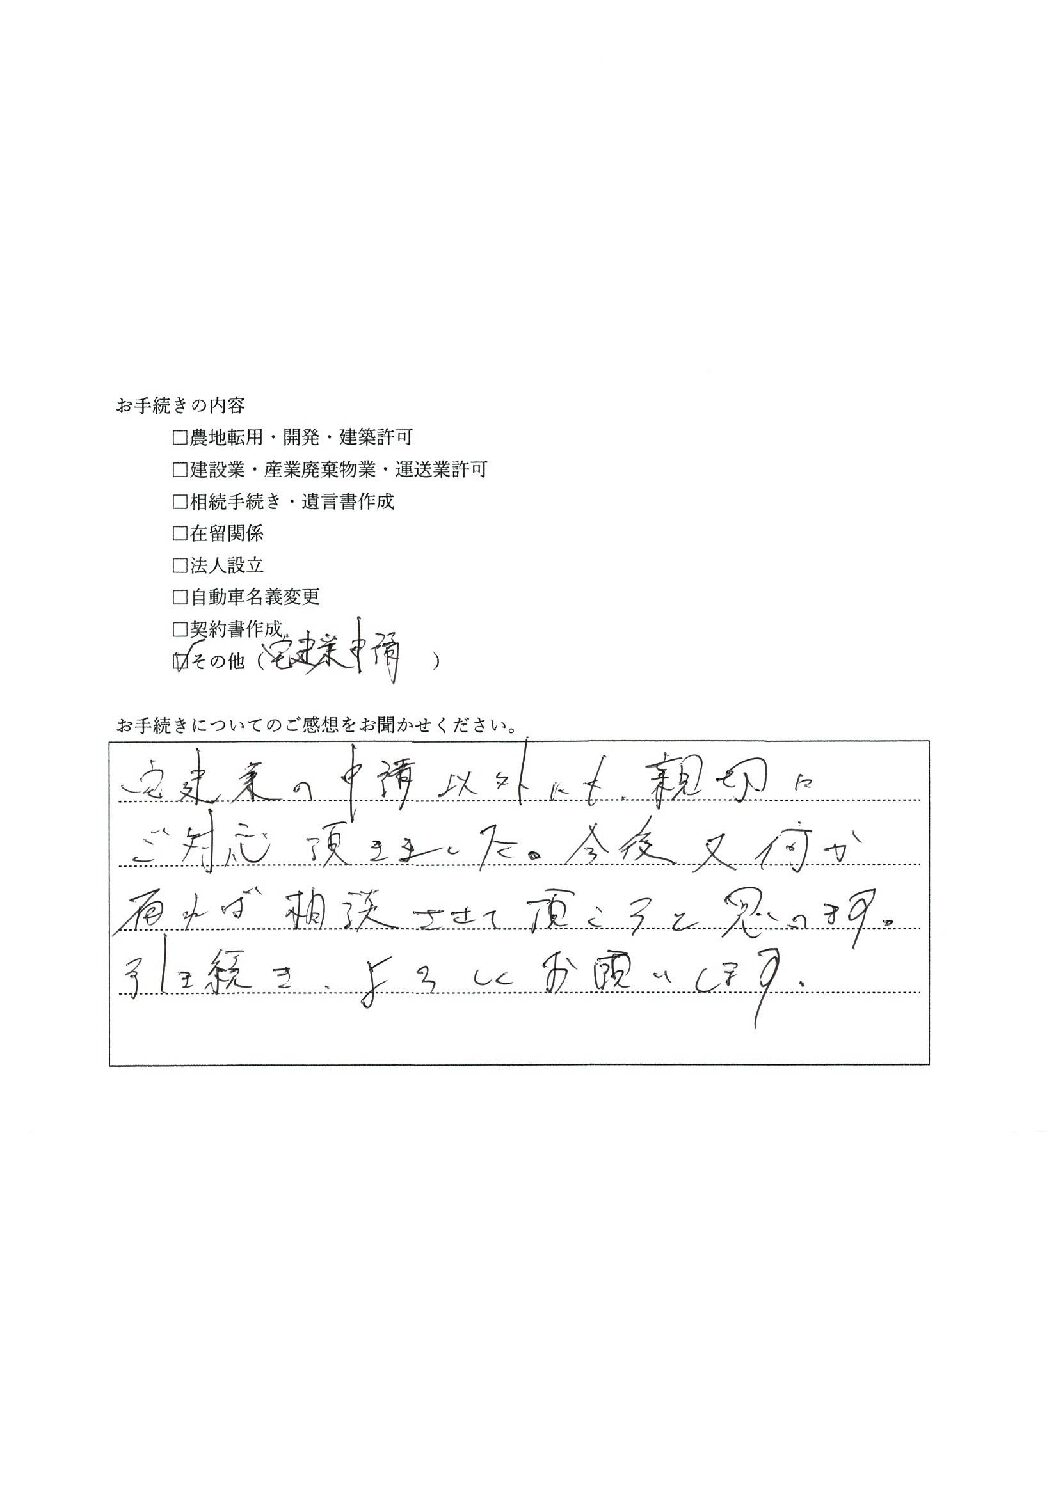 お手続きの内容
□農地転用・開発・建築許可
□建設業・産業廃棄物業・運送業許可
□相続手続き・遺言書作成
□在留関係
□法人設立
□自動車名義変更
□契約書作成
☑その他（宅建業申請　）
お手続きについてのご感想をお聞かせください。
宅建業の申請以外にも、親切に
ご対応頂きました。今後又何か
有れば相談させて頂こうと思います。
引き続き、よろしくお願いします。